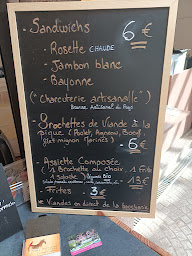 - Sandwichs 6 €
- Rosette CHAUDE
- Jambon blanc
- Bayonne
("Charcuterie artisanale")
Brochettes de Viande à la
pique (Poulet, Boeuf,
filet mignon marinés)
- 6 €
Assiette Composée
1 Brochette au choix 1 Frite
1 Salade Bio 13 €
- Frites - 3 €
Viandes en direct de la boucherie